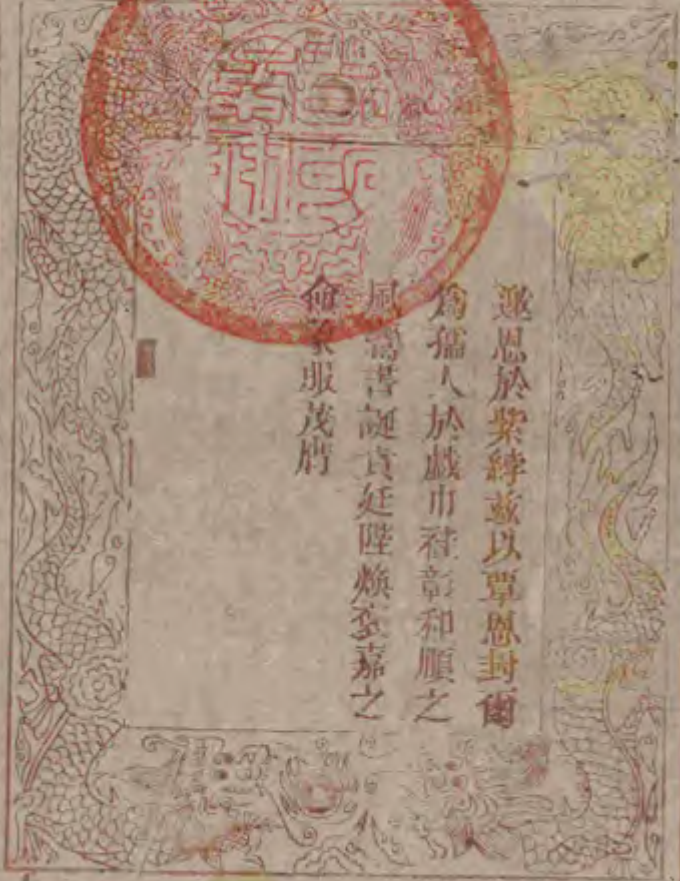 邀恩於紫綍兹以覃恩封爾
為孺人於戲巾袿彰和順之
風鸞書誕賁廷陛煥褒嘉之
命象服茂膺